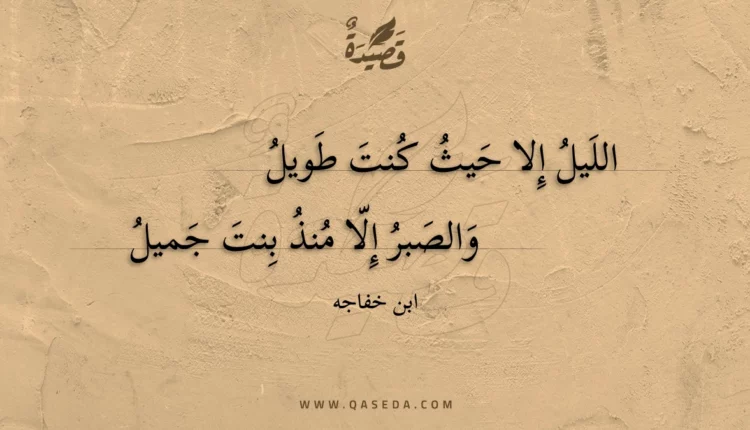 قَصِيْدَةٌ
اللَيلُ إِلا حَيثُ كُنتَ طَويلُ
وَالصَبرُ إِلّا مُنذُ بِنتَ جَميلُ
ابن خفاجه
WWW.QASEDA.COM